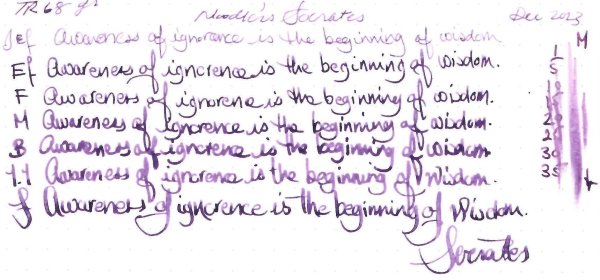 TR 68 gr Noodler's Socrates Dec 2023
Jef Awareness of ignorance is the beginning of wisdom. M
Ef Awareness of ignorence is the beginning of wisdom. 1
F Awareness of ignorenc is the beginning of wisdom. 5
M Awareness of ignorence is the beginning of wisdom. 20
B Awareness of ignorence is the beginning of wisdom. 30
1.1 Awareness of ignorence is the beginning of Wisdom. 35
f Awareness of ignorence is the beginning of Wisdom.
Socrates